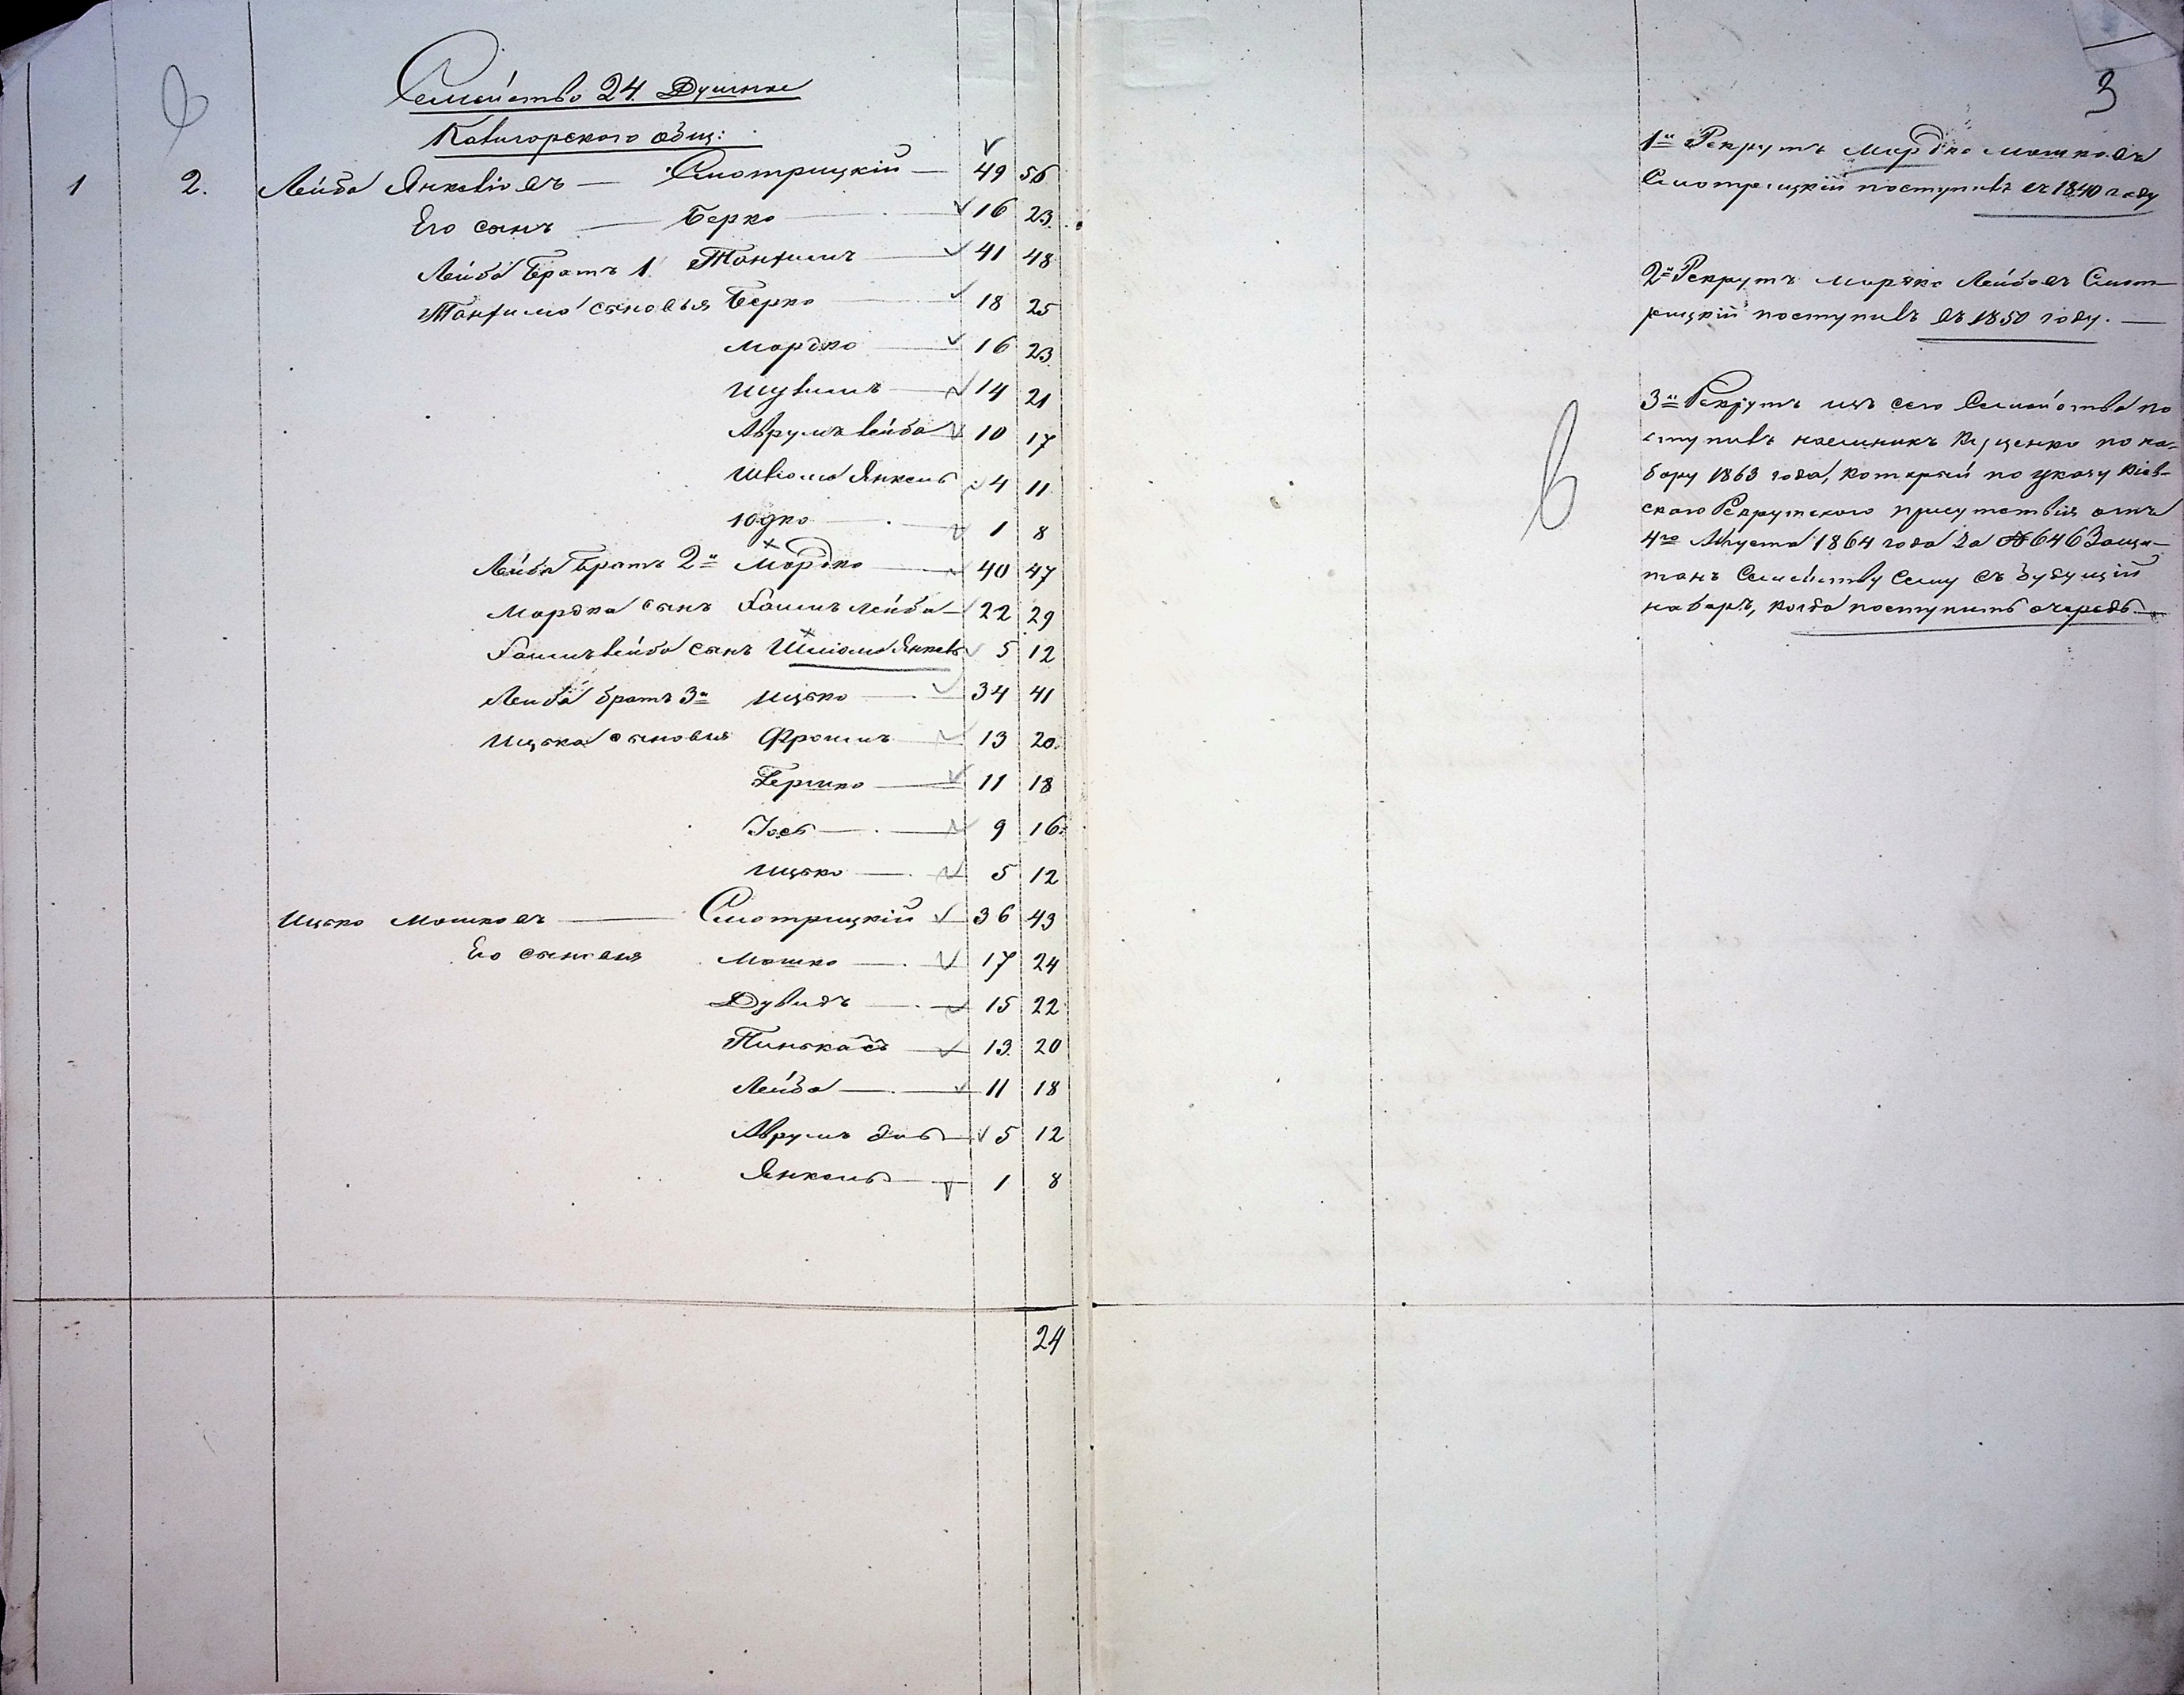 3
Семейство 24 Душные
Кавигорского общ:
1 2. Лейба Янкеліовъ — Смотрицкій — 49 56
Его сынъ — Берко 16 23
Лейба Братъ 1. Танхилъ 41 48
Танхила сыновья Берко 18 25
Мордко 16 23
Шувилъ 14 21
Аврумъ Лейба 10 17
Шліома Янкель 4 11
Юдко 1 8
Лейба Братъ 2й Мордко 40 47
Мордка сынъ Хаимъ Лейба — 22 29
Хаимъ Лейба сынъ Шліома Янкель 5 12
Лейба братъ 3й Ицько — 34 41
Ицька сыновья Фроимъ 13 20
Гершко — 11 18
Іось — 9 16
Ицько — 5 12
Ицько Мошковъ — Смотрицкій 36 43
Его сыновья Мошко — 17 24
Дувидъ — 15 22
Пинькасъ — 13 20
Лейба — 11 18
Аврумъ — 5 12
Янкель — 1 8
24
1й Рекрутъ Мордко Мошковъ
Смотрицкій поступилъ въ 1840 году
2й Рекрутъ Мордко Лейбовъ Смот-
рицкій поступилъ въ 1850 году. —
3й Рекрутъ изъ сего Семейства по
ступилъ наемникъ Куценко по на-
бору 1863 года, который по указу Кіев-
скаго Рекрутского присутствія отъ
4го Августа 1864 года за № 646 Защи-
танъ Семейству Сему въ будущій
наборъ, когда поступитъ очередь.